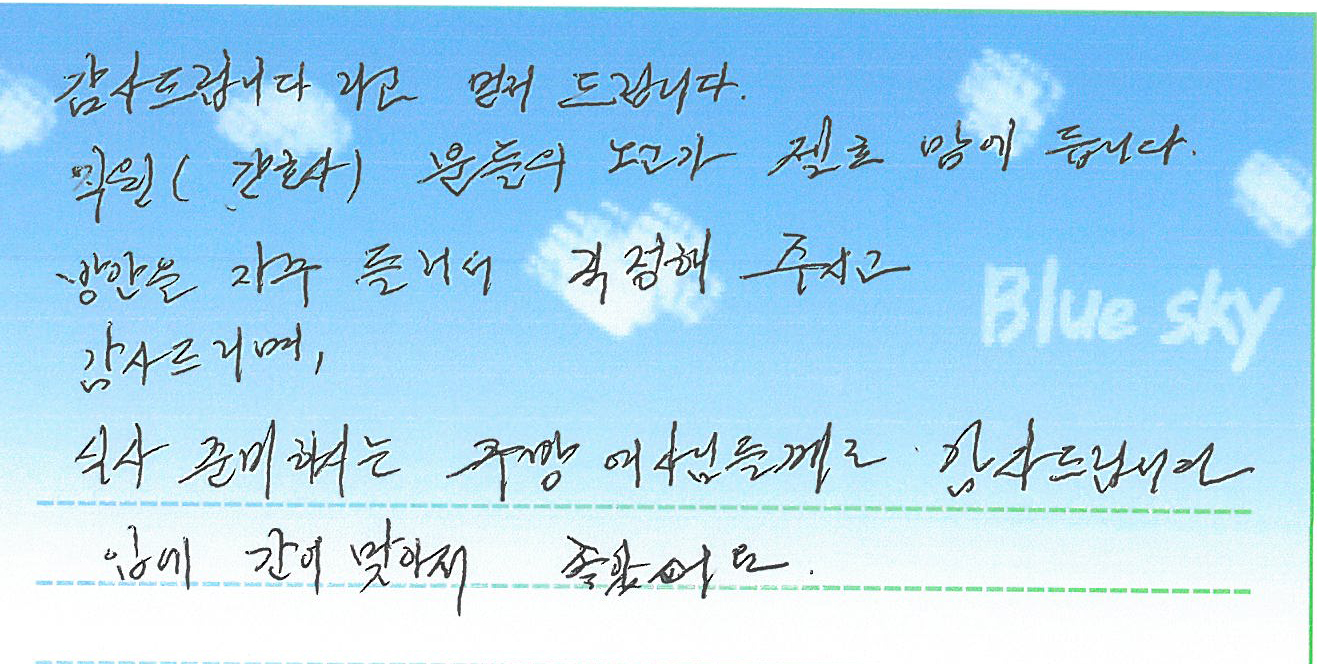 감사드립니다 라고 먼저 드립니다.
직원( 간호사) 분들의 노고가 젤로 맘에 듭니다.
방안을 자주 들러서 걱정해 주시고
Blue sky
감사드리며,
식사 준비하시는 주방 여사님들께도 감사드립니다
입에 간이 맞아서 좋았어요.